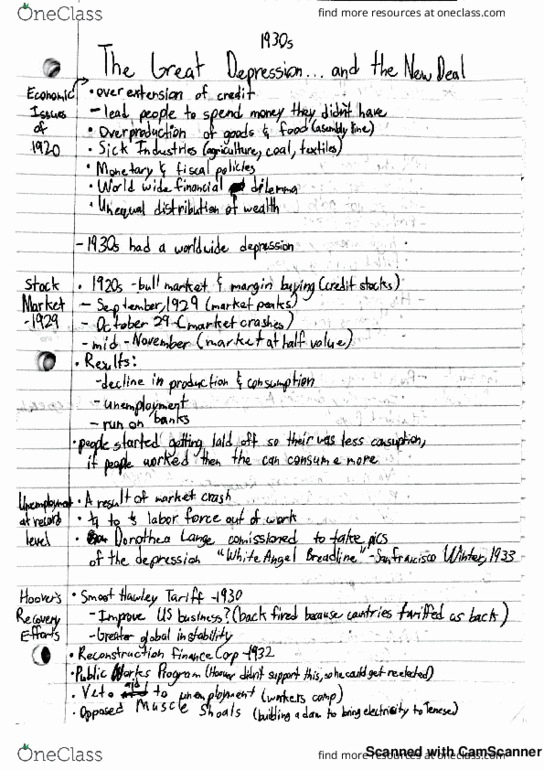 OneClass
find more resources at oneclass.com
1930s
The Great Depression... and the New Deal
Economic Issues of 1920
• over extension of credit
- lead people to spend money they didn't have
• Overproduction of goods & food (asembly line)
• Sick Industries (agriculture, coal, textiles)
• Monetary & fiscal policies
• World wide financial dilema
• Unequal distribution of wealth
- 1930s had a worldwide depression
Stock Market - 1929
• 1920s - bull market & margin buying (credit stocks)
- September, 1929 (market peaks)
- October 29 - (market crashes)
- mid - November (market at half value)
• Results:
- decline in production & consumption
- unemployment
- run on banks
• people started getting laid off so their was less consuption,
if people worked then the can consume more
Unemployment at record level
• A result of market crash
• ¼ to ⅓ labor force out of work
• Dorothea Lange comissioned to take pics
of the depression "White Angel Breadline" - San francisco Winter, 1933
Hoover's Recovery Efforts
• Smoot Hawley Tariff - 1930
- Improve US business? (back fired because countries tariffed as back)
- Greater global instability
• Reconstruction Finance Corp - 1932
• Public Works Program (Hoover didn't support this, so he could get reelected)
• Veto aid to unemployment (workers comp)
• Opposed Muscle Shoals (building a dam to bring electricity to Tenese)
OneClass
find more resources at oneclass.com
Scanned with CamScanner